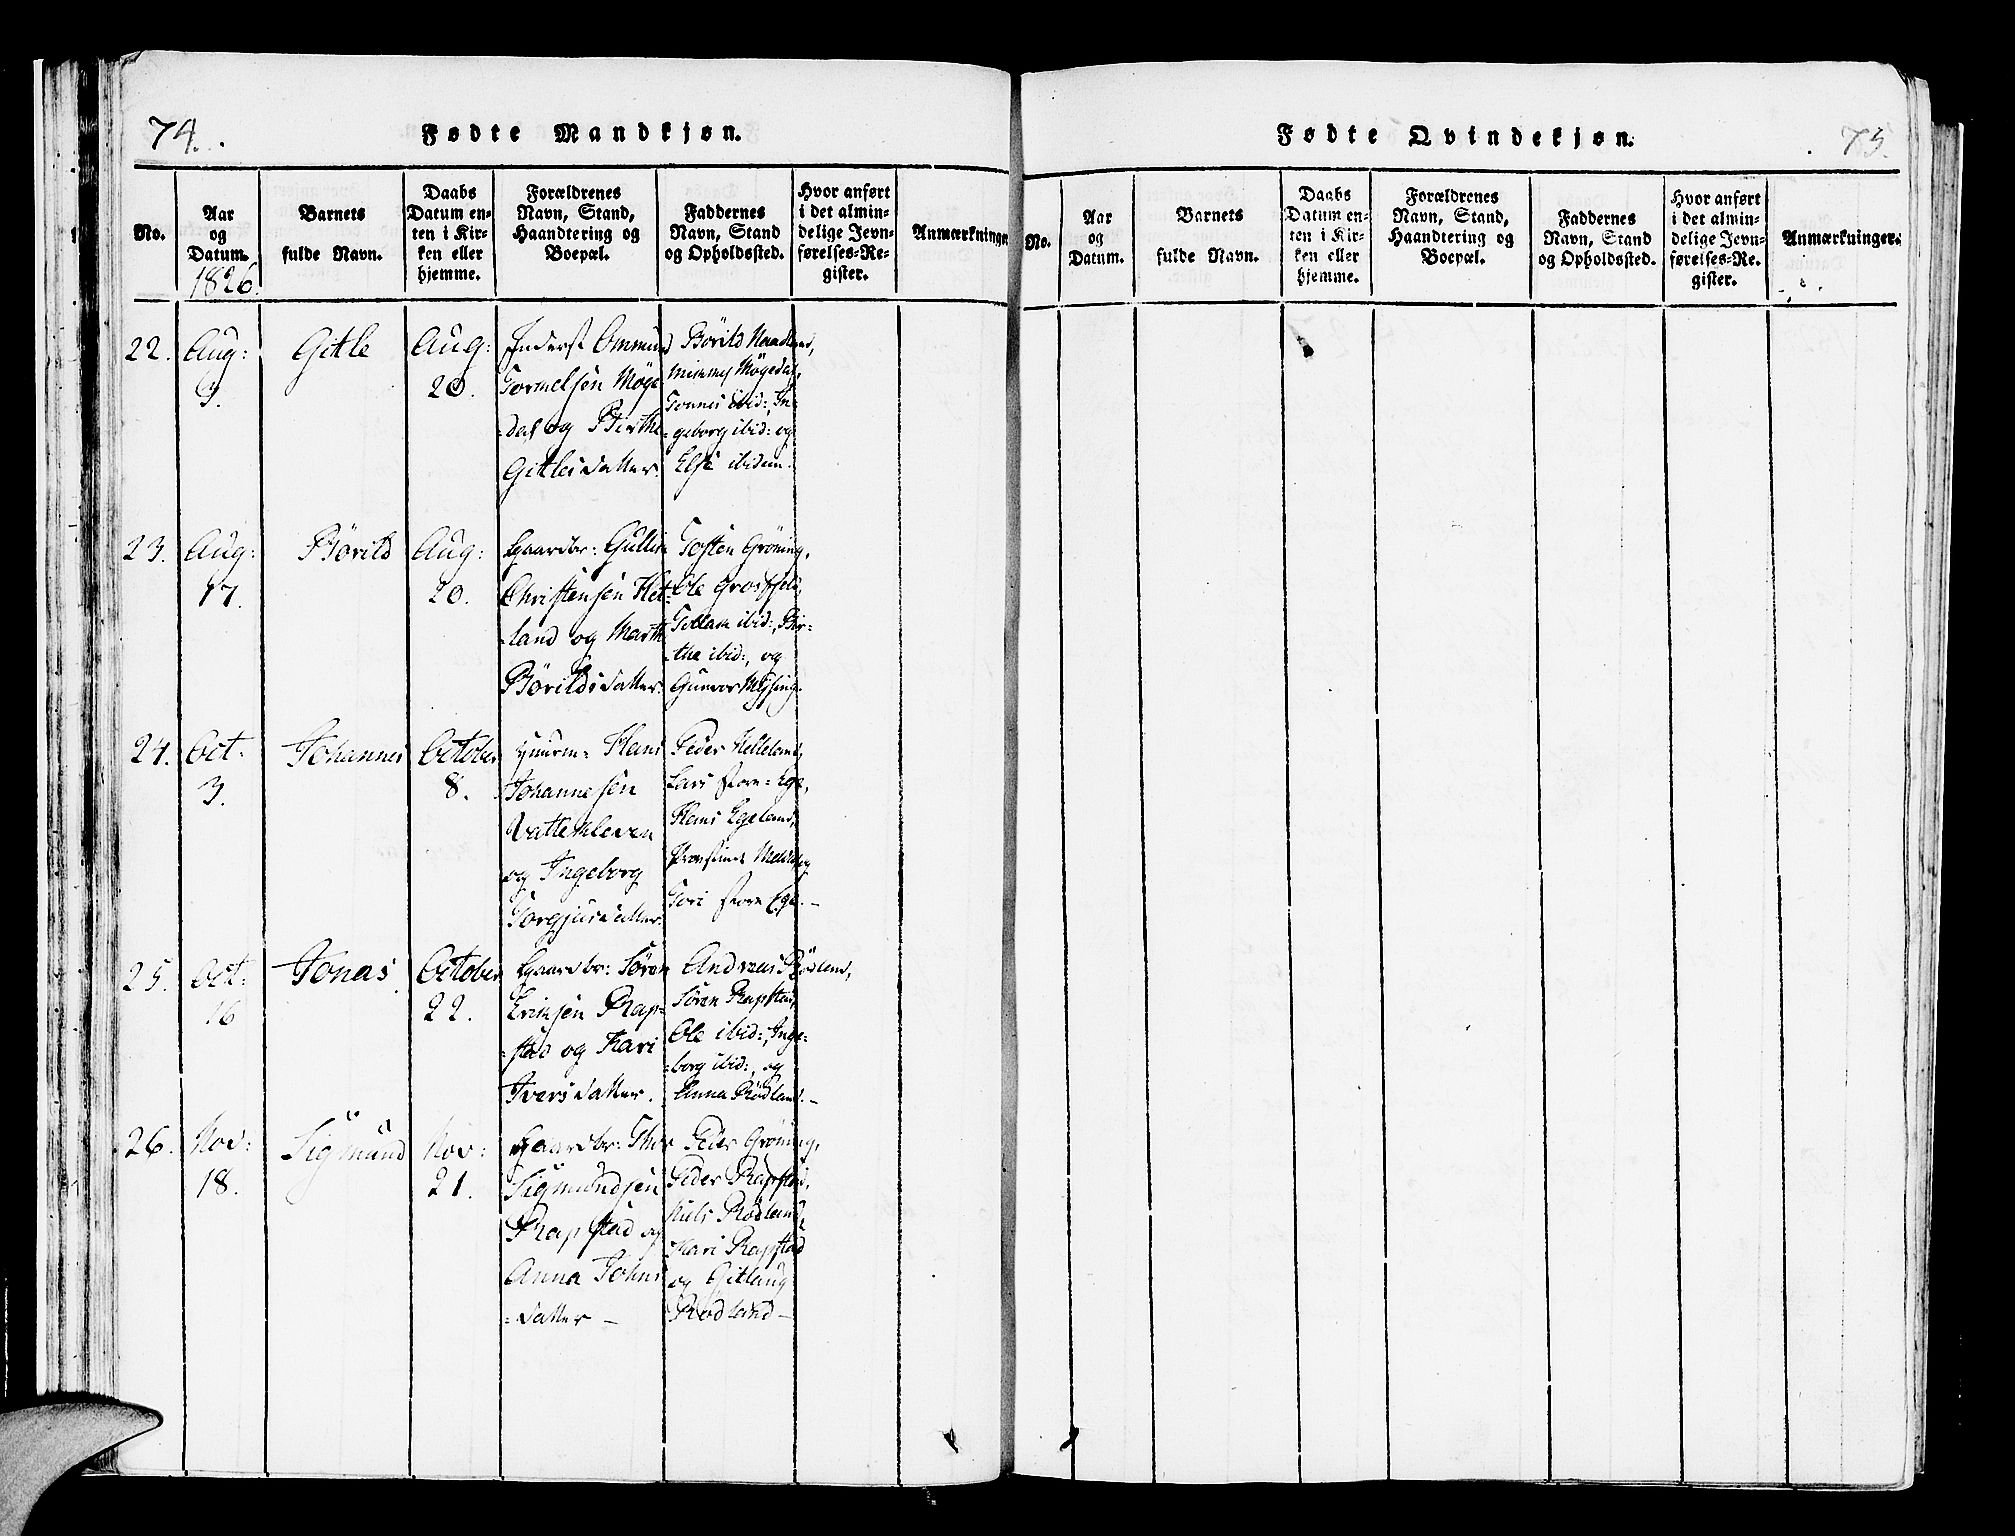 74.
Fødte Mandkjøn.
No.
Aar
og
Datum.
1826.
Barnets
fulde Navn.
Daabs
Datum en-
ten i Kir-
ken eller
hjemme.
Forældrenes
Navn, Stand,
Haandtering og
Boepæl.
Faddernes
Navn, Stand
og Opholdssted.
Hvor anført
i det almin-
delige Jevn-
førelses-Re-
gister.
Anmærkninger
22.
Aug:
3.
Gitle
Aug:
20.
Inderst Ommund
Tormelsen Møge-
-dal og Birthe
Gitlesdatter.
Börild Haadland,
Møgedal,
Tonnes ibid:, In-
-geborg ibid: og
Else ibidem.
23.
Aug:
17.
Börild
Aug:
20.
Gaardbr: Gullik
Christensen Het-
-land og Marthe
Börildsdatter.
Tosten Gröning,
Ole Grosfjeld,
ibid:, Bir-
-the ibid:, og
Gunvor Mysing.
24.
Oct:
3.
Johannes
October
8.
Huusm: Hans
Johannesen
Vattekleven
og Ingeborg
Torgjusdatter.
Peder Helleland,
Lars store-Ege,
Hans Egeland,
Tori store Ege.-
25.
Oct:
16
Jonas
October
22.
Gaardbr: Sören
Eriksen Rap-
-stad og Kari
Iversdatter.
Andreas Rödland,
Sören Rapstad,
Ole ibid:, Inge-
-borg ibid:, og
Anna Rödland.-
26.
Nov:
18.
Sigmund
Nov:
21.
Gaardbr: Thor
Sigmundsen
Rapstad og
Anna Johns
-datter -
Peder Gröning,
Peder Rapstad,
Niels Rödland,
Kari Rapstad
og Gitlaug
Rödland -
75.
Fødte Qvindekjøn.
No.
Aar
og
Datum.
Barnets
fulde Navn.
Daabs
Datum en-
ten i Kir-
ken eller
hjemme.
Forældrenes
Navn, Stand,
Haandtering og
Boepæl.
Faddernes
Navn, Stand
og Opholdssted.
Hvor anført
i det almin-
delige Jevn-
førelses-Re-
gister.
Anmærkninger.